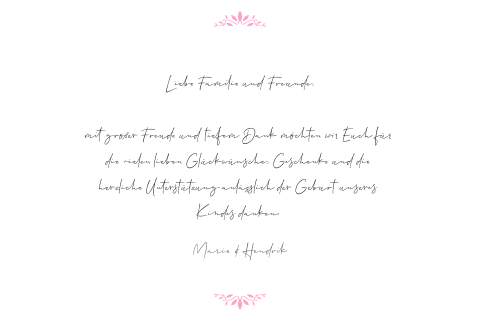 Liebe Familie und Freunde,
mit großer Freude und tiefem Dank möchten wir Euch für
die vielen lieben Glückwünsche, Geschenke und die
herzliche Unterstützung anlässlich der Geburt unseres
Kindes danken.
Marie & Hendrik